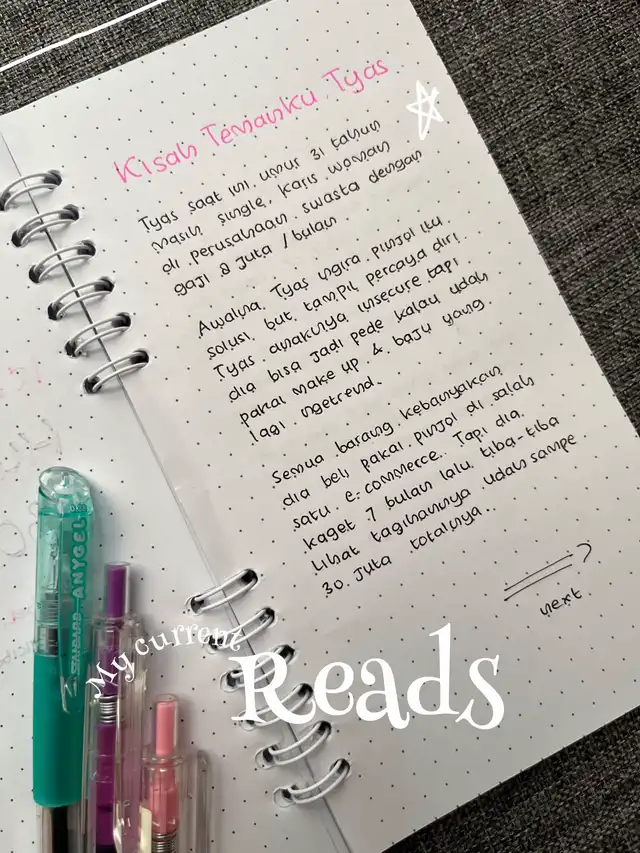 Kisah Temanku Tyas
Tyas saat ini, umur 31 tahun
masih single, karis woman
di perusahaan swasta dengan
gaji 8 juta / bulan.
Awalna, Tyas ngira pinjol itu
solusi but tampil percaya diri
Tyas anaknya insecure tapi
dia bisa jadi pede kalau udah
pakai make up & baju yang
lagi ngetrend.
Semua barang kebanyakan
dia beli pakai pinjol di salah
satu e-commerce. Tapi dia
kaget 7 bulan lalu tiba-tiba
lihat tagihannya udah sampe
30 juta totalnya..
next
STANDARD ANYGEL
My current
Reads